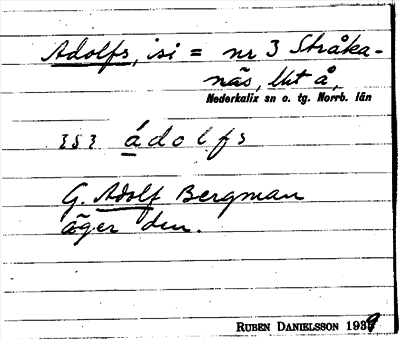 Adolfs, isi = nr 3 Stråka-
näs, lht å,
Nederkalix sn o. tg. Norrb. län
ádolfs
G. Adolf Bergman
äger den.
RUBEN DANIELSSON 1939